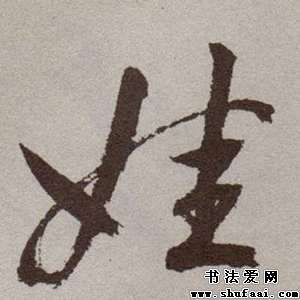 娃
书法爱网
www.shufaai.com